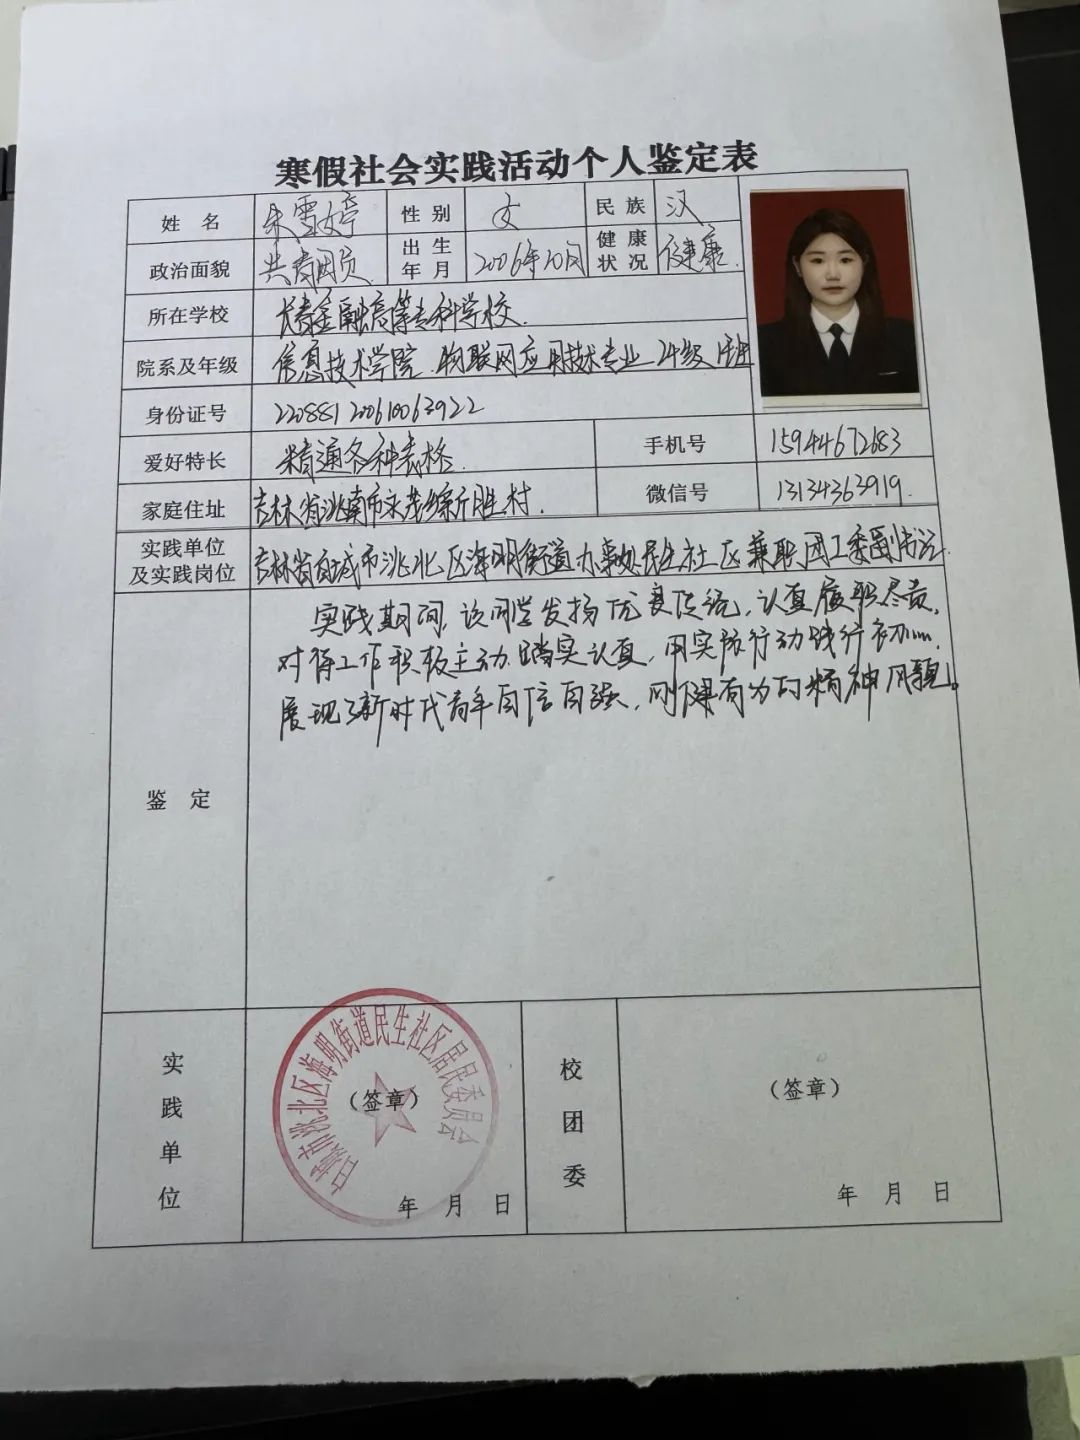 寒假社会实践活动个人鉴定表
姓 名 朱雪婷 性 别 女 民 族 汉
政治面貌 共青团员 出 生 年 月 2006年10月 健 康 状 况 健康.
所在学校 长春金融高等专科学校.
院系及年级 信息技术学院.物联网应用技术专业 24级 1班
身份证号 220881200610063922
爱好特长 精通各种表格. 手机号 15944672683
家庭住址 吉林省洮南市永茂乡新胜村. 微信号 13134363919.
实践单位
及实践岗位 吉林省白城市洮北区海明街道办事处民生社区兼职团工委副书记
鉴 定
实践期间,该同学发扬优良传统,认真履职尽责,
对待工作积极主动.踏实认真,用实际行动践行初心.
展现了新时代青年自信自强,刚健有为的精神风貌。
实践单位
白城市洮北区海明街道民生社区居民委员会
(签章)
年 月 日
校团委
(签章)
年 月 日